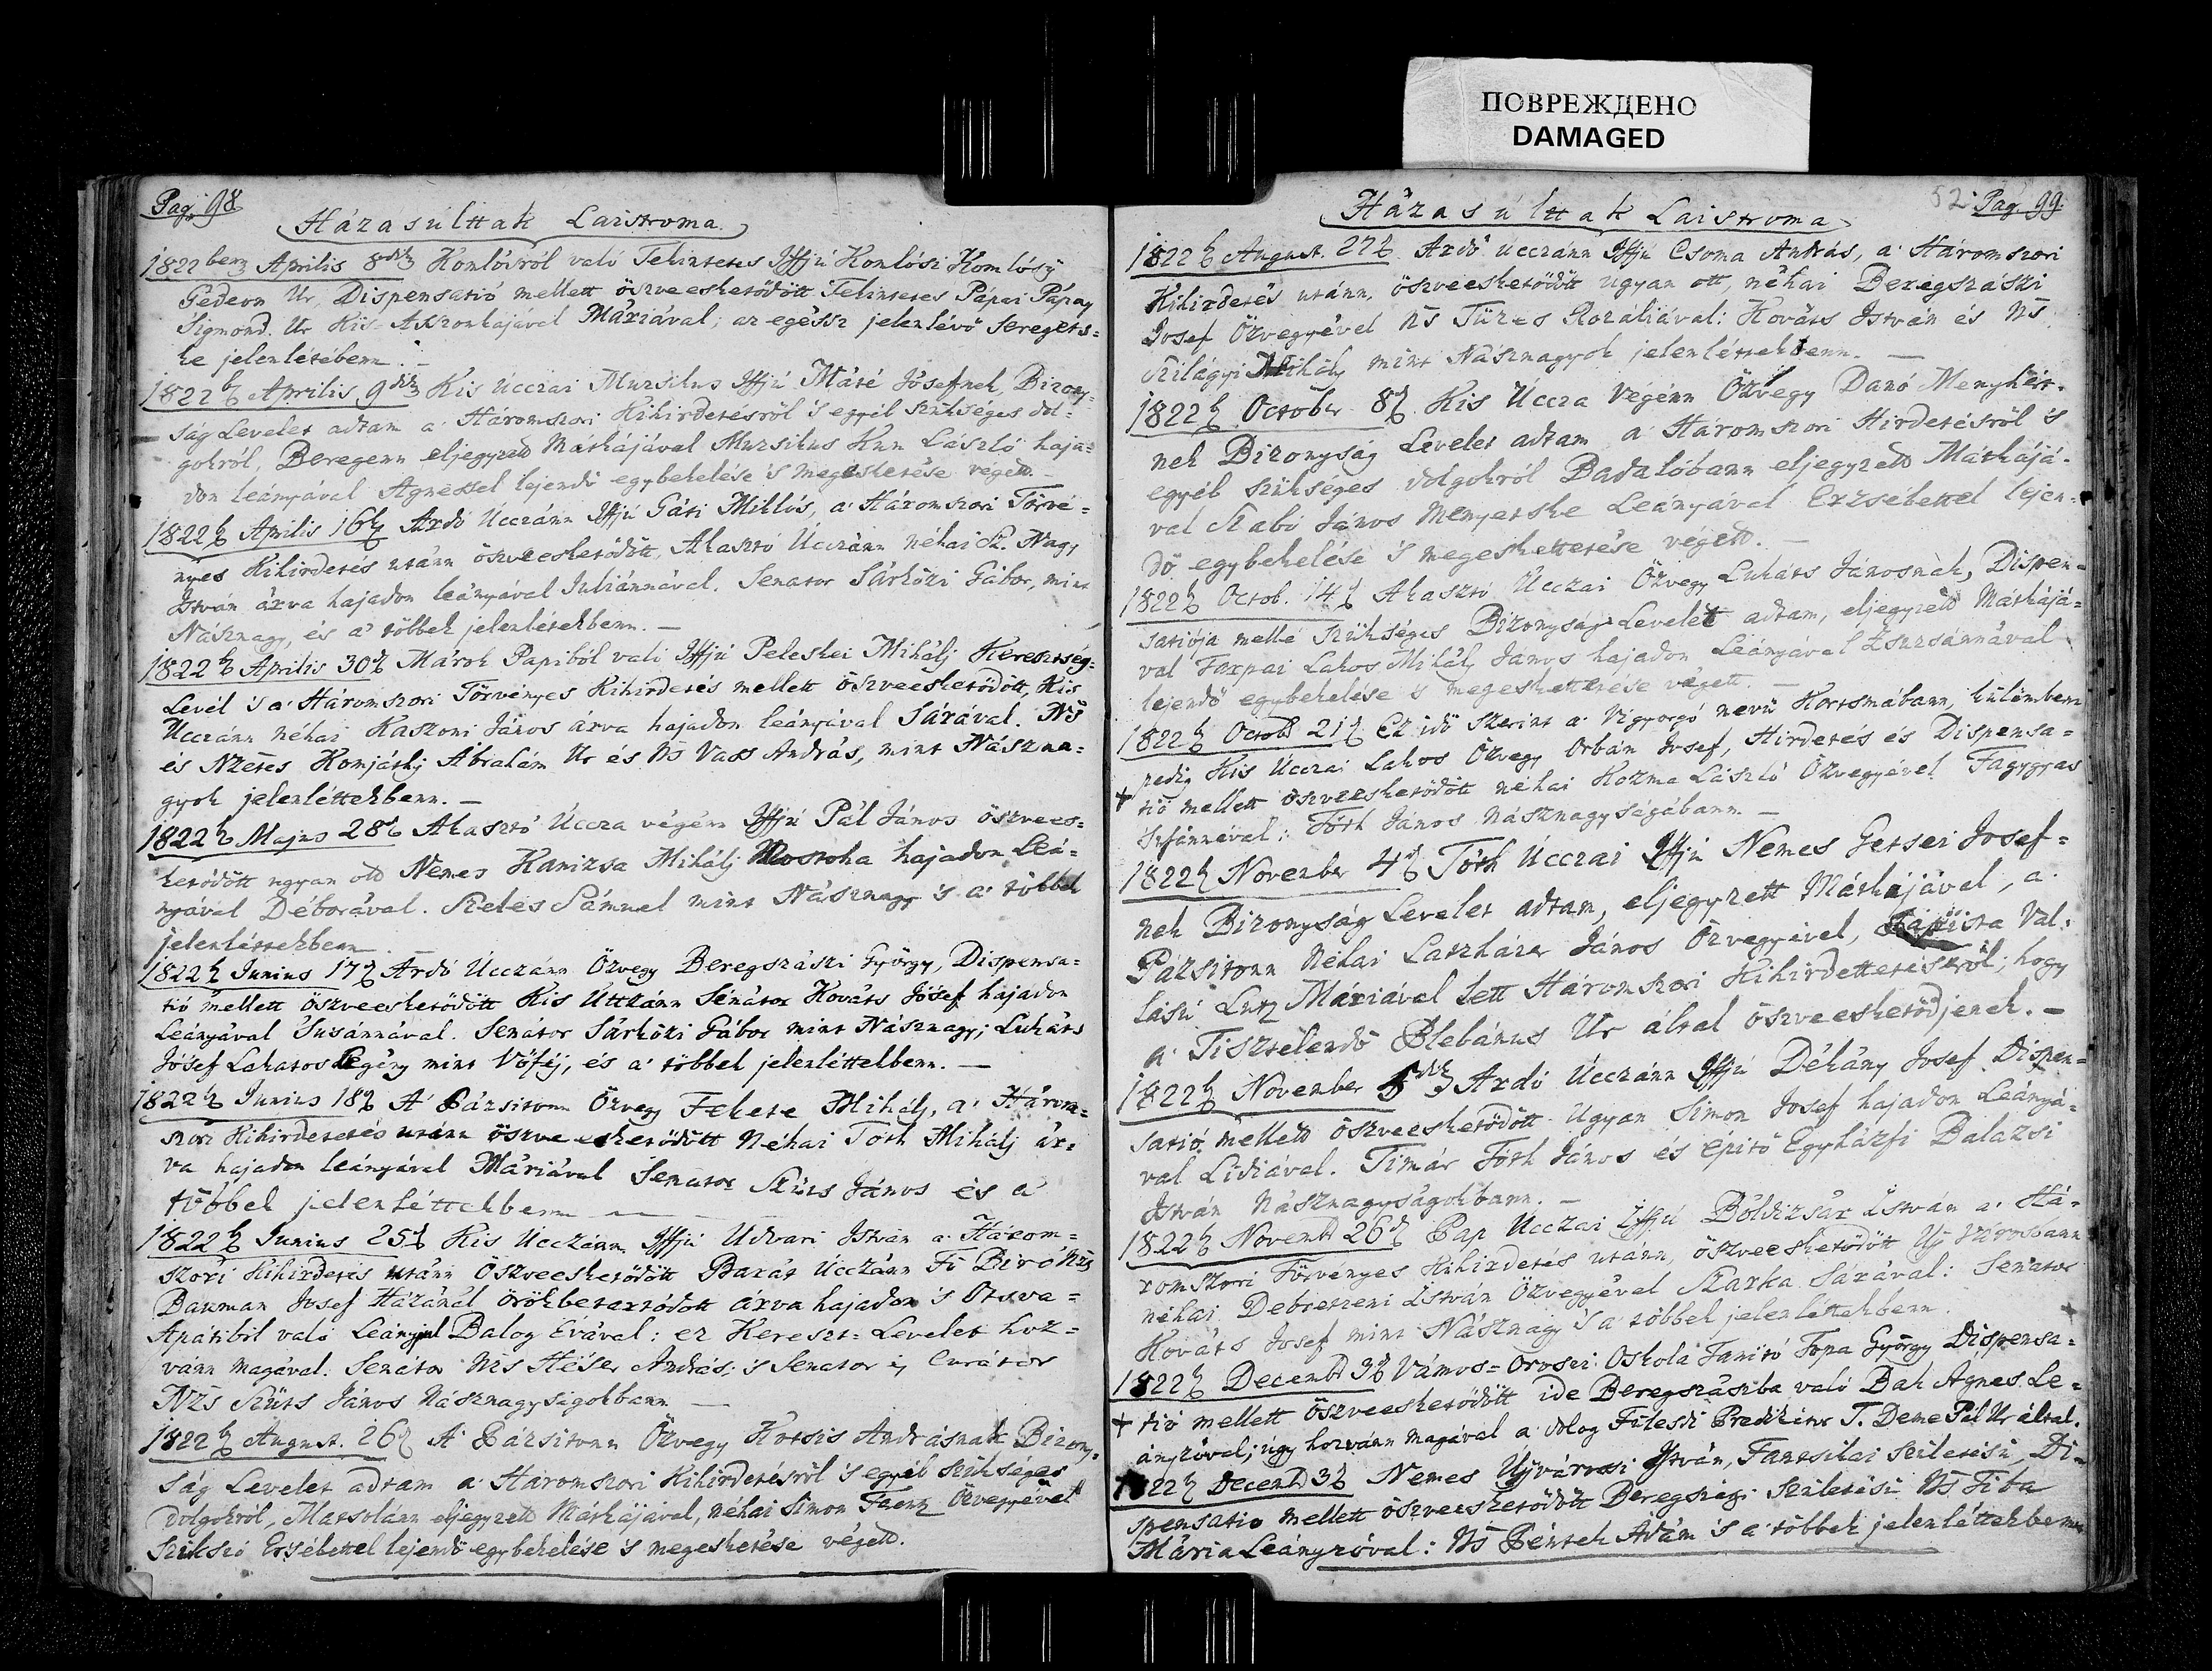 ПОВРЕЖДЕНО
DAMAGED
Pag. 98
Házasúlttak Laistroma.
1822ben Aprilis 8dik Komlósról való Tekintetes Iffjú Komlósi Komlósy
Gedeon Ur, Dispensatió mellett öszveesketődött Tekintetes Pápai Pápay
Sigmond Ur Kis-Aszonkájával Máriával; az egéssz jelenlévő seregets=
ke jelenlétébenn.
1822b Aprilis 9dik Kis Ucczai Musikus Iffjú Máté Jósefnek, Bizony-
ság Levelet adtam a' Háromszori Kihirdetésről 's egyéb szükséges dol-
gokról, Beregenn eljegyzett Mátkájával Musikus Kun László haja-
don leányával Agnessel lejendő egybekelése 's megesketése végett.
1822b Aprilis 16b Ardó Ucczánn Iffjú Gáti Miklós, a' Háromszori Törvé-
nyes Kihirdetés utánn öszveesketődött, Akasztó Ucczánn néhai Sz. Nagy
István árva hajadon leányával Juliánnával. Senator Sárközi Gábor, mint
Násznagy, és a' többek jelenlétekbenn. —
1822b Aprilis 30d Márok Papiból való Iffjú Peleskei Mihálj Keresztség-
Levél 's a' Háromszori Törvényes Kihirdetés mellett öszveesketődött, Kis
Ucczann néhai Kaszoni János árva hajadon leányával Sárával. Ns
és Nzetes Komjáthj Ábrahám Ur és Ns Vass András, mint Násznа=
gyok jelenléttekbenn. —
1822b Majus 28d Akasztó Uccza végénn Iffjú Pál János öszvees-
ketődött ugyan ott Nemes Kanizsa Mihálj Mostoha hajadon Leá-
nyával Déborával. Szeles Sámuel mint Násznagy 's a' többek
jelenléttekbenn. —
1822b Junius 17d Ardó Ucczánn Özvegy Beregszászi György, Dispensa-
tió mellett öszveesketődött Kis Uttzánn Senátor Kováts Jósef hajadon
Leányával Susánnával. Senátor Sárközi Gábor mint Násznagy; Lukáts
Jósef Lakatos Legény mint Vőféj, és a' többek jelenléttekbenn. —
1822b Junius 18d A' Pázsitonn Özvegy Fekete Mihálj, a' Három-
szori Kihirdetetés utánn öszve esketődött Néhai Tóth Mihálj ár-
va hajadon leányával Máriával Senator Szűts János és a'
többek jelenléttekbenn —
1822b Junius 25d Kis Ucczánn Iffjú Udvari István a' Három=
szori Kihirdetés utánn Öszveesketődött Barát Ucczánn Fő Biró Nzs
Bakman Josef Házánál örökbetartódott árva hajadon 's Otsva=
Apátiból való Leánnyal Balog Évával: ez Kereszt= Levelet hoz=
vánn magával. Senátor Ns Héser András, 's Senator és Curátor
Nzs Szűts János Násznagyságokbann —
1822b August. 26d A' Pázsitonn Özvegy Kotsis Andrásnak Bizony-
ság Levelet adtam a' Háromszori Kihirdetésről 's egyéb szükséges
dolgokról, Matsolánn eljegyzett Mátkájával, néhai Simon Ferenz Özvegyével
Szikszó Ersébettel lejendő egybekelése 's megesketése végett.
52. Pag. 99.
Házasúlttak Laistroma
1822b August. 27b. Ardó Ucczánn Iffjú Csoma András, a' Háromszori
Kihirdetés utánn, öszveesketődött ugyan ott, néhai Beregszászi
Josef Özvegyével Ns Tüzes Rozáliával: Kováts István és Ns
Szilágyi Mihály mint Násznagyok jelenléttekbenn. —
1822b October 8d. Kis Uccza Végénn Özvegy Danó Menyhért-
nek Bizonyság Levelet adtam a' Háromszori Hirdetésről 's
egyéb szükséges dolgokról Badalóbann eljegyzett Mátkájá-
val Szabó János Menyetske Leányával Erzsébettel lejen-
dő egybekelése 's megeskettetése végett. —
1822b Octob. 14d Akasztó Ucczai Özvegy Lukáts Jánosnak, Dispen-
satiója mellé szükséges Bizonyság Levelét adtam, eljegyzett Mátkájá-
val Tarpai Lakos Mihálj János hajadon Leányával 'Zsuzsánnával
lejendő egybekelése 's megeskettetése végett. —
1822b Octobr 21d Ez idő szerint a' Vigyorgó nevű Kortsmábann, külömbenn
pedig Kis Ucczai Lakos Özvegy Orbán Josef, Hirdetés és Dispensa=
+ tió mellett öszveesketődött néhai Kozma László Özvegyével Fagygyas
'Susánnával: Tóth János Násznagyságábann. —
1822b November 4d Tóth Ucczai Iffjú Nemes Getsei Josef=
nek Bizonyság Levelet adtam, eljegyzett Mátkájával, a'
Pázsitonn Néhai Laszházer János Özvegyével, Pápista Val-
lású Lutz Máriával lett Háromszori Kihirdettetésekről; hogy
a' Tisztelendő Plebánus Ur által öszveesketődjenek. —
1822b November 5dik Ardó Ucczánn Iffjú Dékány Josef Dispen=
satió mellett öszveesketődött Ugyan Simon Josef hajadon Leányá-
val Lidiával. Timár Tóth János és epitő Egyházfi Balazsi
István Násznagyságokbann. —
1822b Novembr 26d Pap Ucczai Iffjú Bóldizsár István a' Há-
romszori Törvényes Kihirdetés utánn, öszveesketődött Uj Városbann
néhai Debretzeni István Özvegyével Szarka Sárával: Senator
Kováts Josef mint Násznagy 's a' többek jelenléttekbenn.
1822b Decembr 3d Vámos= Oroszi Oskola Tanitó Topa György Dispensa=
+ tió mellett öszveesketődött ide Beregszászba való Bak Agnes Le=
ányzóval; úgy hozvánn magával a' dolog Fülesdi Prédikátor T. Deme Pál Ur által.
1822b Decembr 3d Nemes Ujvárosi István, Fantsikai születésű, Di-
spensatio mellett öszveesketődött Beregszászi születésű Ns Fiba
Mária Leányzóval: Ns Péntek Ádám 's a' többek jelenléttekbenn